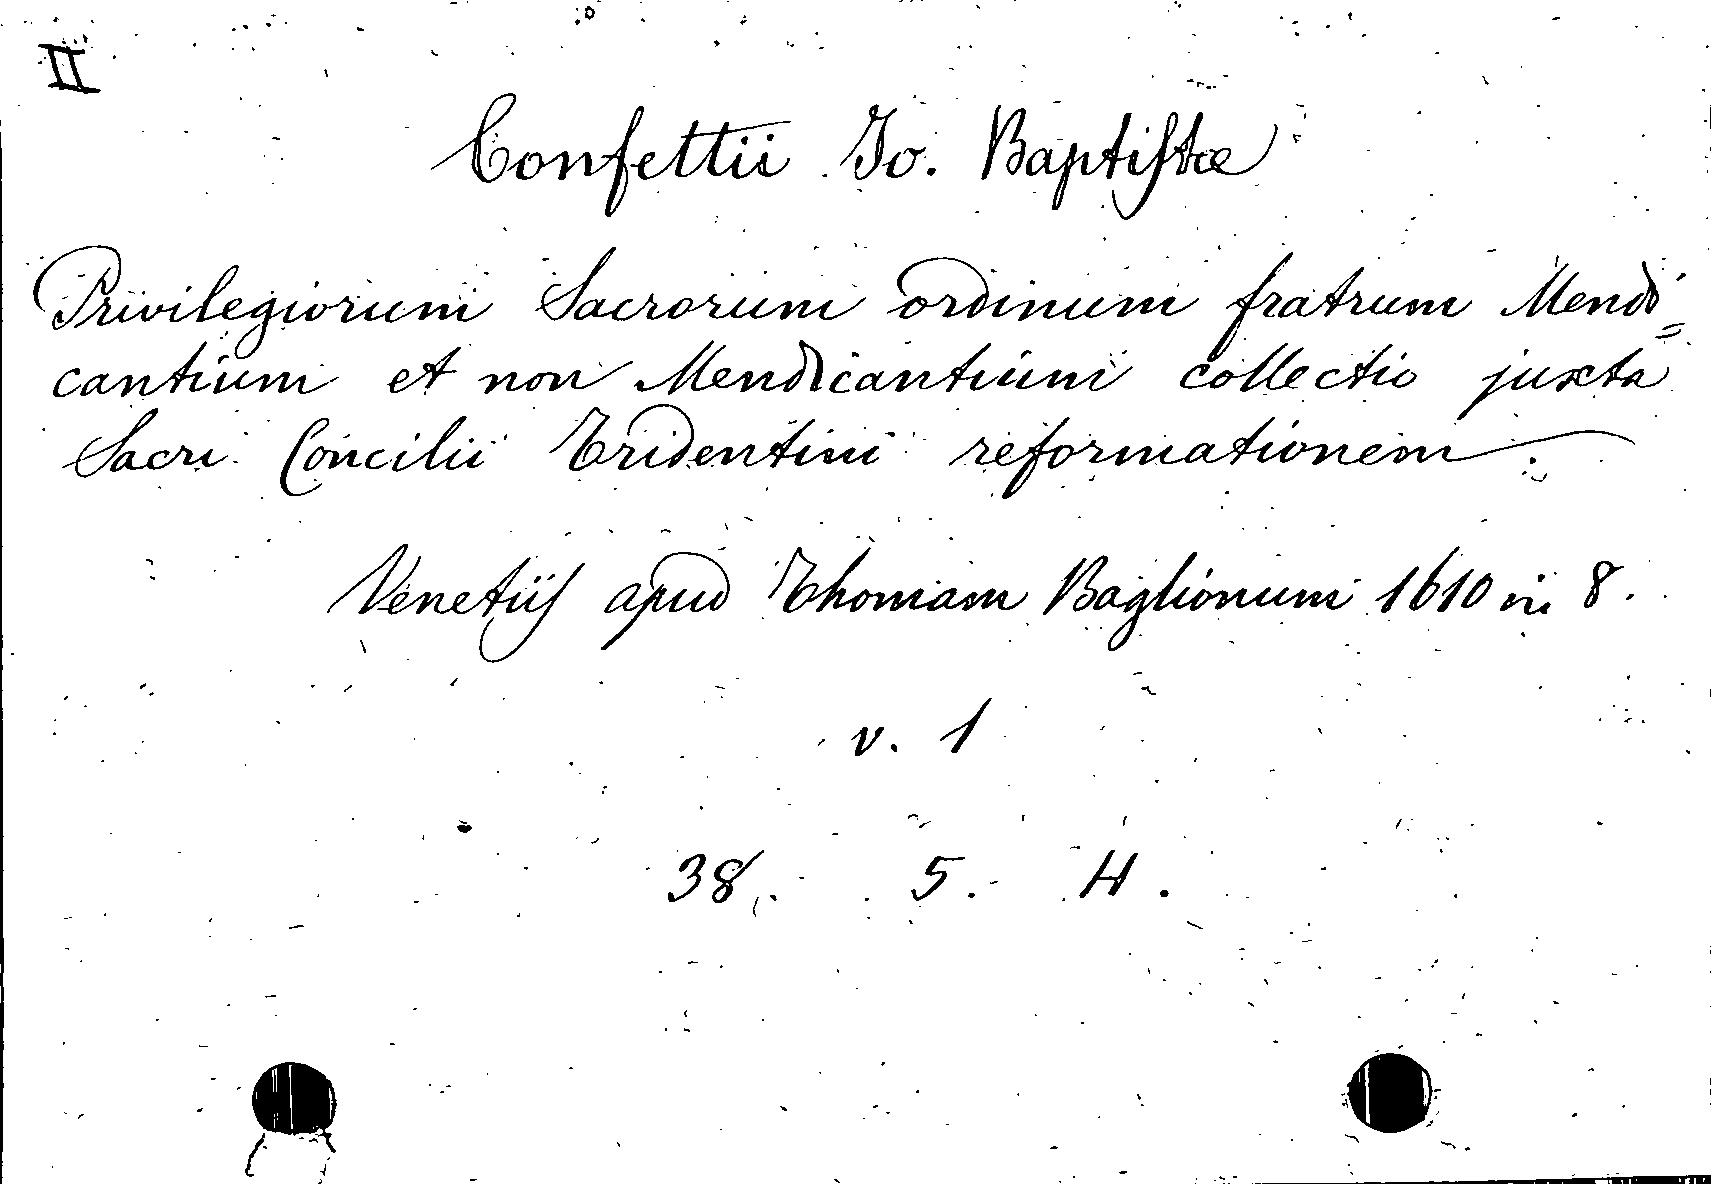 II
Confettii Jo. Baptiſtæ
Privilegiorum Sacrorum ordinum fratrum Mendi=
cantium et non Mendicantium collectio juxta
Sacri Concilii Tridentini reformationem.
Venetiis apud Thomam Baglionum 1610 in 8.
v. 1
38. 5. H.